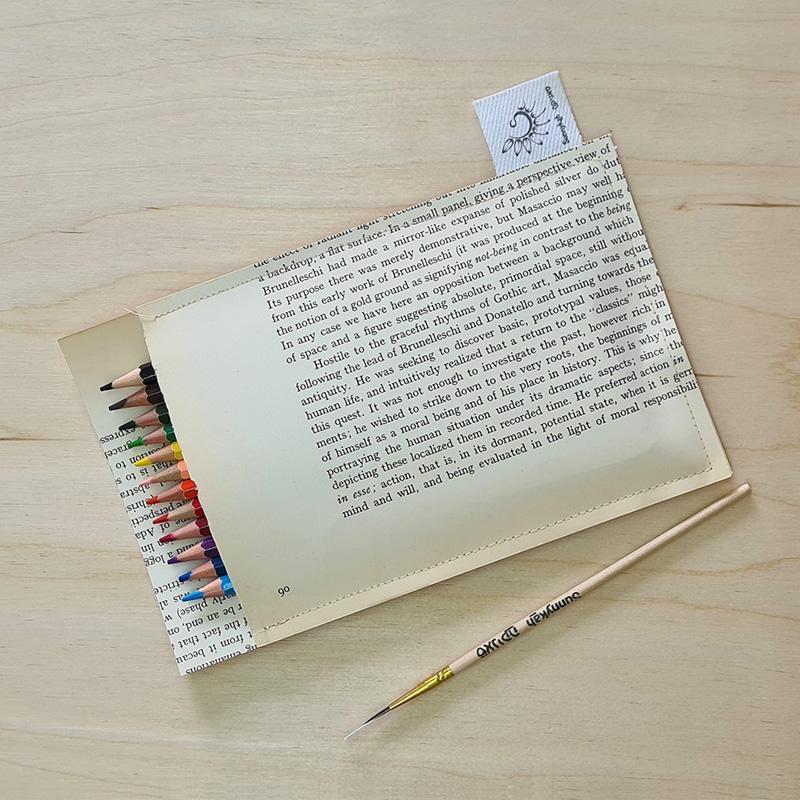 the effect of radiant light
a backdrop, a flat surface. In a small panel, giving a perspective view of
Brunelleschi had made a mirror-like expanse of polished silver do dut
Its purpose there was merely demonstrative, but Masaccio may well h
from this early work of Brunelleschi (it was produced at the beginning
the notion of a gold ground as signifying not-being in contrast to the being
In any case we have here an opposition between a background which
of space and a figure suggesting absolute, primordial space, still withou
Hostile to the graceful rhythms of Gothic art, Masaccio was equa
following the lead of Brunelleschi and Donatello and turning towards the
antiquity. He was seeking to discover basic, prototypal values, those
human life, and intuitively realized that a return to the "classics" migh
this quest. It was not enough to investigate the past, however rich in
ments; he wished to strike down to the very roots, the beginnings of
of himself as a moral being and of his place in history. This is why he
portraying the human situation under its dramatic aspects; since the
depicting these localized them in recorded time. He preferred action in
in esse; action, that is, in its dormant, potential state, when it is germ
mind and will, and being evaluated in the light of moral responsibili
90
Sunnykah
Sunnykah
express
grace
position to
that is to s
abstra
perspecti
one of Ada
ion lin
and a logg
stricte
early phase) w
or be an end, on
or the fact that
it from it becau